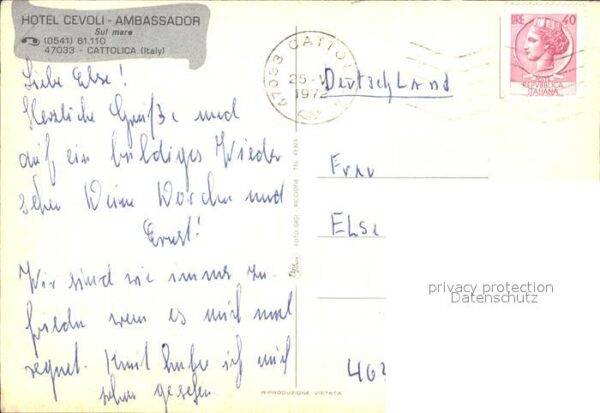 HOTEL CEVOLI - AMBASSADOR
Sul mare
(0541) 61.110
47033 - CATTOLICA (Italy)
47033 CATTOLI
25-V
1972
LIRE 40
REPVBBLICA
ITALIANA
Deutschland
Liebe Else!
Herzliche Grüße und
auf ein baldiges Wieder
sehen Deine Dorchen und
Ernst!
Wir sind wie immer zu
frieden wenn es mich mal
regnet. Emil habe ich mich
schon gesehen.
Frau
ELSE
403
privacy protection
Datenschutz
FOTO GIGI RICCIONE
RIPRODUZIONE VIETATA